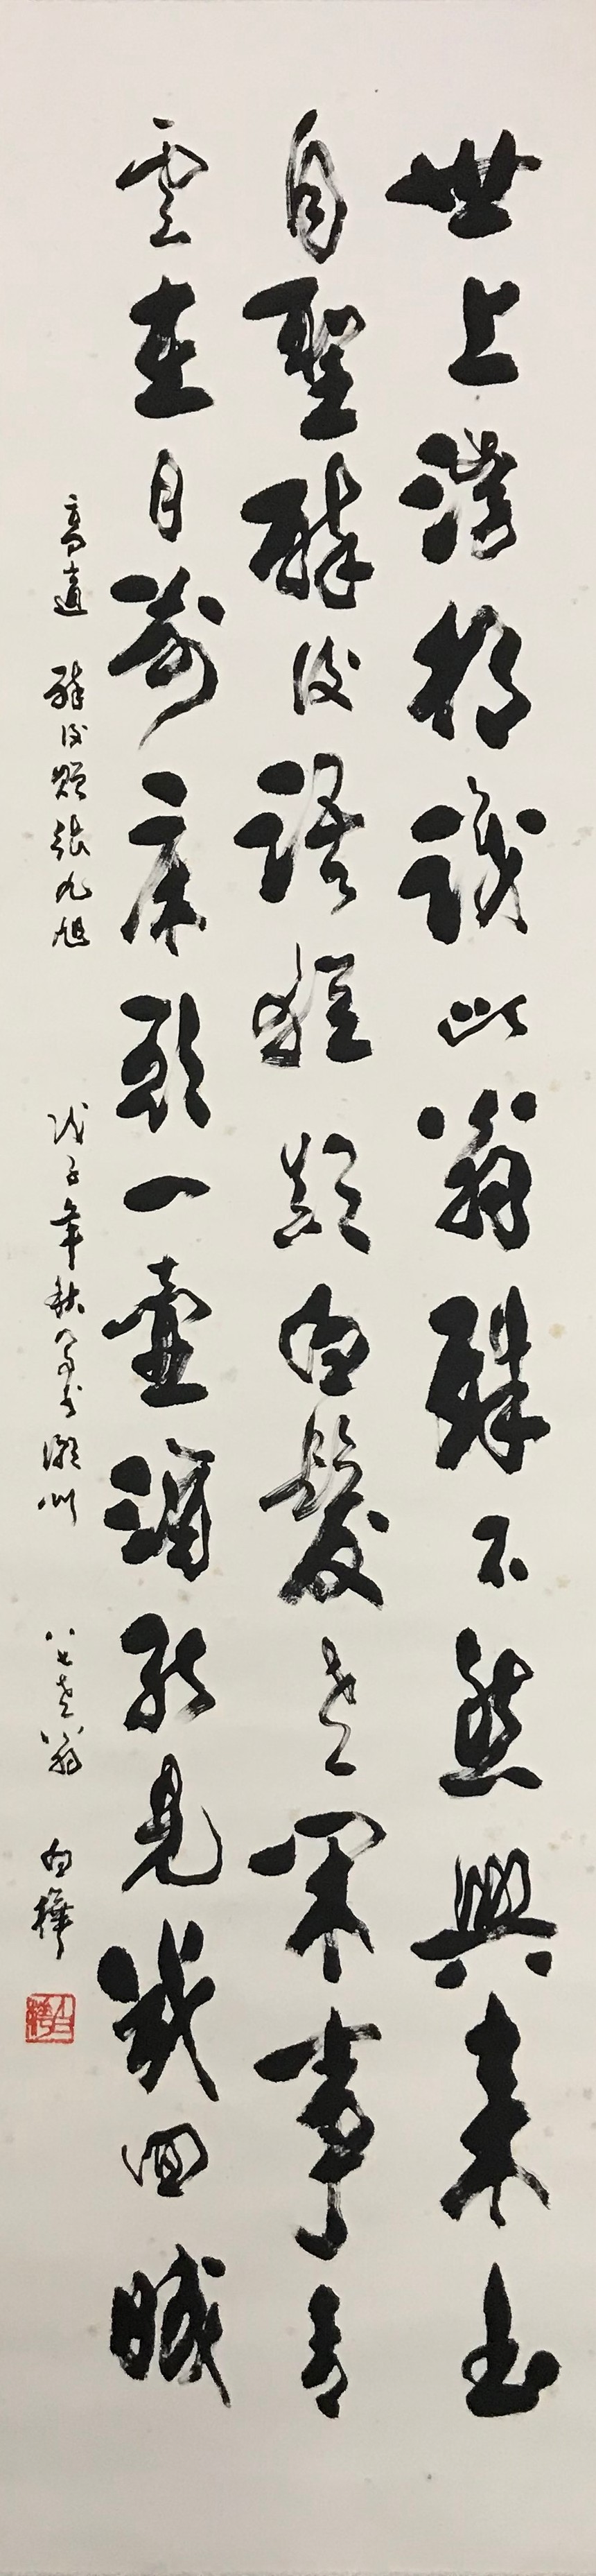 世上漫相識此翁殊不然興來書
自聖醉後語猶顛白髮老閑事青
雲在目前床頭一壺酒能見幾回眠
高適 醉後贈張九旭 戊子年秋 八七老翁 白樺